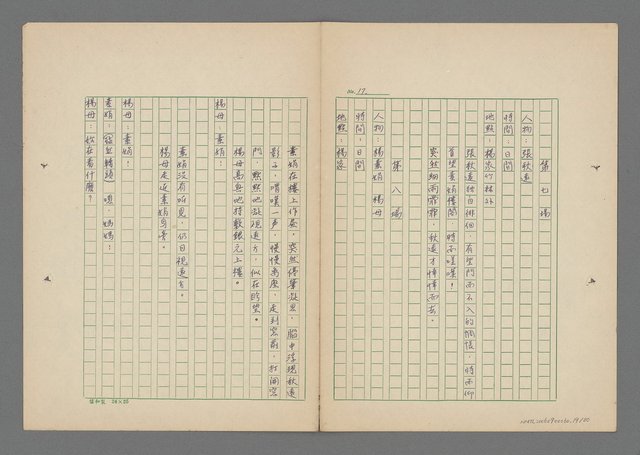 No. 17
第七場
人物：張秋遠
時間：日間
地點：楊家竹林外
張秋遠獨自徘徊，有望門而不入的惆悵，時而仰
首望素娟樓閣，時而嘆嘆！
突然細雨霏霏，秋遠才悻悻而去。
第八場
人物：楊素娟、楊母
時間：日間
地點：楊家
素娟在樓上作畫，突然停筆凝思，腦中浮現秋遠
影子，喟嘆一聲，慢慢離座，走到窗前，打開窗
門，默默地凝視遠方，似在盼望。
楊母高興地持數銀元上樓。
楊母：素娟！
素娟沒有听見，仍目視遠方。
楊母走近素娟身旁。
楊母：素娟！
素娟：（猛然轉頭）唄，媽媽！
楊母：妳在看什麼？
24×25